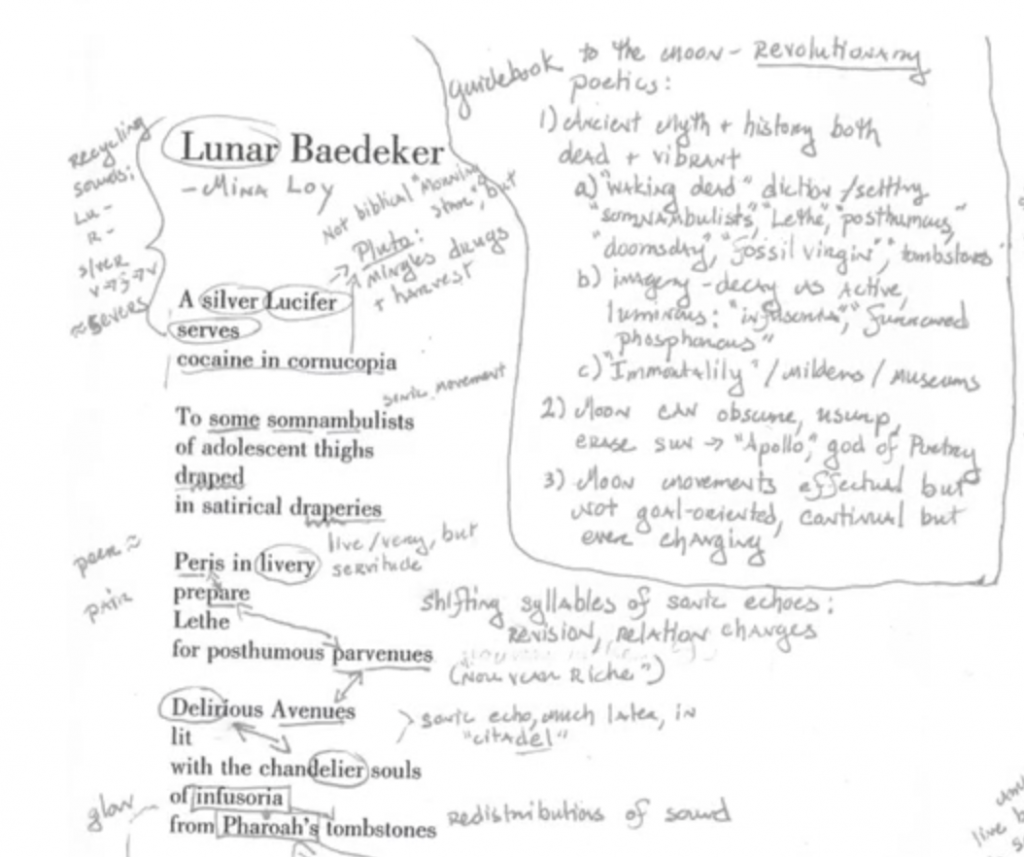 guidebook to the moon - Revolutionary
poetics:
1) Ancient myth + history both
dead + vibrant
a) "waking dead" diction/setting
"somnambulists," "Lethe," "posthumous,"
"doomsday," "fossil virgin", "tombstones"
b) imagery - decay as active,
luminous: "infusoria", "
phosphorous"
c) "Immortality" / mildews / museums
2) Moon can obscure, usurp,
erase sun → "Apollo," god of Poetry
3) Moon movements effectual but
not goal-oriented, continual but
ever changing
Recycling
sounds:
Lu -
R -
silver
≈ severs
Lunar Baedeker
- Mina Loy
Not biblical "Morning
Star," but
→ Pluto:
Mingles drugs
+ harvest
A silver Lucifer
serves
cocaine in cornucopia
sonic movement
To some somnambulists
of adolescent thighs
draped
in satirical draperies
live/very, but
servitude
peer ≈
pair
Peris in livery
prepare
Lethe
for posthumous parvenues
Shifting syllables of sonic echoes:
revision, relation changes
("Nouveau Riche")
Delirious Avenues
lit
with the chandelier souls
of infusoria
from Pharoah's tombstones
> sonic echo, much later, in
"citadel"
glow
Redistributions of sound
live